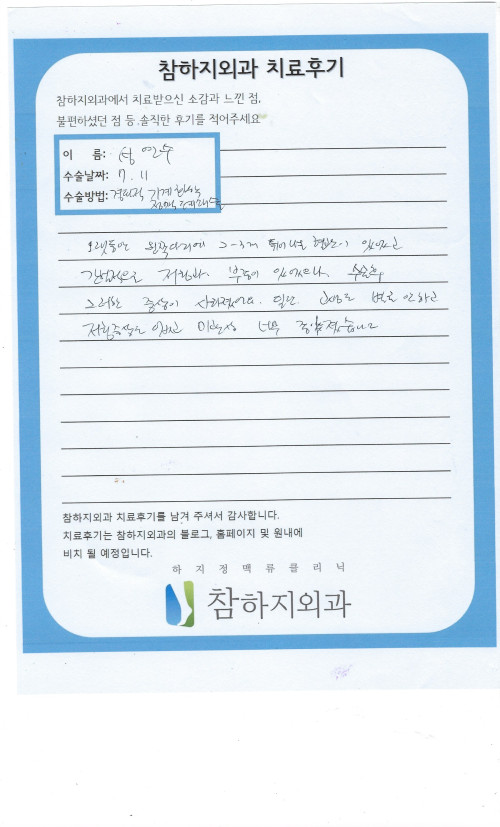 참하지외과 치료후기
참하지외과에서 치료받으신 소감과 느낀 점,
불편하셨던 점 등 솔직한 후기를 적어주세요
이 름: 연수
수술날짜: 7. 11
수술방법: 경피적 기계화학
정맥 폐쇄술
오랫동안 왼쪽다리에 2-3개 튀어나온 혈관이 있었고
간헐적으로 저림과 부종이 있었으나 수술후
그러한 증상이 사라졌어요. 일단 통증도 별로 안하고
저림증상도 없고 미관상 너무 좋아졌습니다
참하지외과 치료후기를 남겨 주셔서 감사합니다.
치료후기는 참하지외과의 블로그, 홈페이지 및 원내에
비치 될 예정입니다.
하지정맥류클리닉
참하지외과